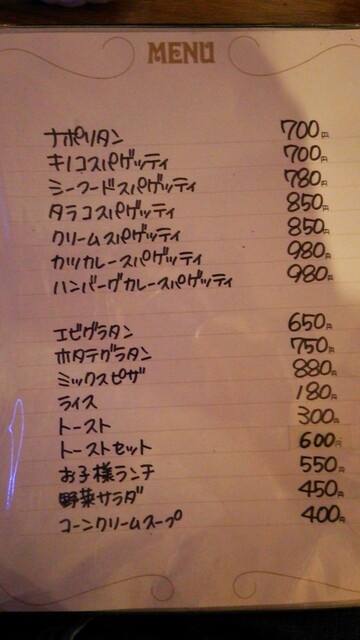 MENU
ナポリタン 700円
キノコスパゲッティ 700円
シーフードスパゲッティ 780円
タラコスパゲッティ 850円
クリームスパゲッティ 850円
カツカレースパゲッティ 980円
ハンバーグカレースパゲッティ 980円
エビグラタン 650円
ホタテグラタン 750円
ミックスピザ 880円
ライス 180円
トースト 300円
トーストセット 600円
お子様ランチ 550円
野菜サラダ 450円
コーンクリームスープ 400円